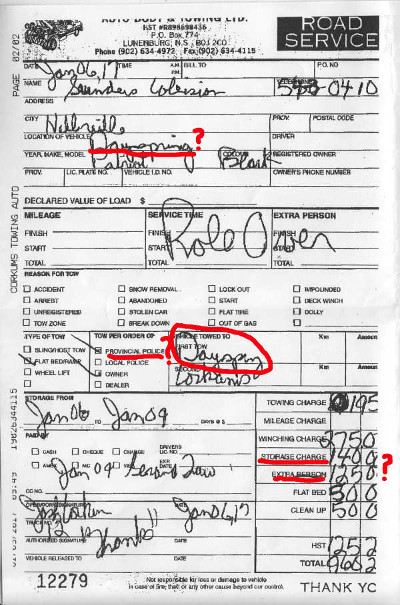 AUTO BODY & TOWING LTD.
HST #R898698436
P.O. Box 774
LUNENBURG, N.S., B0J 2C0
Phone (902) 634-4972 Fax (902) 634-4115
ROAD SERVICE
PAGE 02/02
DATE Jan 06, 17 TIME A.M. P.M. BILL TO P.O. NO
NAME Saunders Collision 543-0410
ADDRESS
CITY Hebbville PROV. POSTAL CODE
LOCATION OF VEHICLE ? DRIVER
YEAR, MAKE, MODEL Patriot COLOUR Black REGISTERED OWNER
PROV. LIC. PLATE NO. VEHICLE I.D. NO. OWNER'S PHONE NUMBER
DECLARED VALUE OF LOAD $
MILEAGE SERVICE TIME EXTRA PERSON
FINISH FINISH FINISH
START START START
TOTAL TOTAL TOTAL
Role Over
CORKUMS TOWING AUTO
REASON FOR TOW
ACCIDENT SNOW REMOVAL LOCK OUT IMPOUNDED
ARREST ABANDONED START DECK WINCH
UNREGISTERED STOLEN CAR FLAT TIRE DOLLY
TOW ZONE BREAK DOWN OUT OF GAS
TYPE OF TOW TOW PER ORDER OF VEHICLE TOWED TO
SLING/HOIST TOW PROVINCIAL POLICE ? FIRST TOW Km Amount
FLAT BED/RAMP LOCAL POLICE
WHEEL LIFT OWNER SECOND Km Amount
DEALER Corkums
STORAGE FROM Jan 06 TO Jan 09 DAYS @ $
TOWING CHARGE 195
MILEAGE CHARGE
PAID BY WINCHING CHARGE 6750
CASH CHEQUE CHARGE DRIVERS LIC. NO. STORAGE CHARGE 1400
AMEX MC VISA EXP. DATE EXTRA PERSON 1250 ?
Jan 09 Second Tow
CC NO. FLAT BED 500
OPERATOR'S SIGNATURE DATE Jan 06, 17 CLEAN UP 500
TRUCK NO. 12
Thanks
AUTHORIZED SIGNATURE DATE HST 1252
VEHICLE RELEASED TO DATE TOTAL 9602
19026344115
12279
Not responsible for loss or damage to vehicle
in case of fire, theft or any other cause beyond our control.
THANK YO